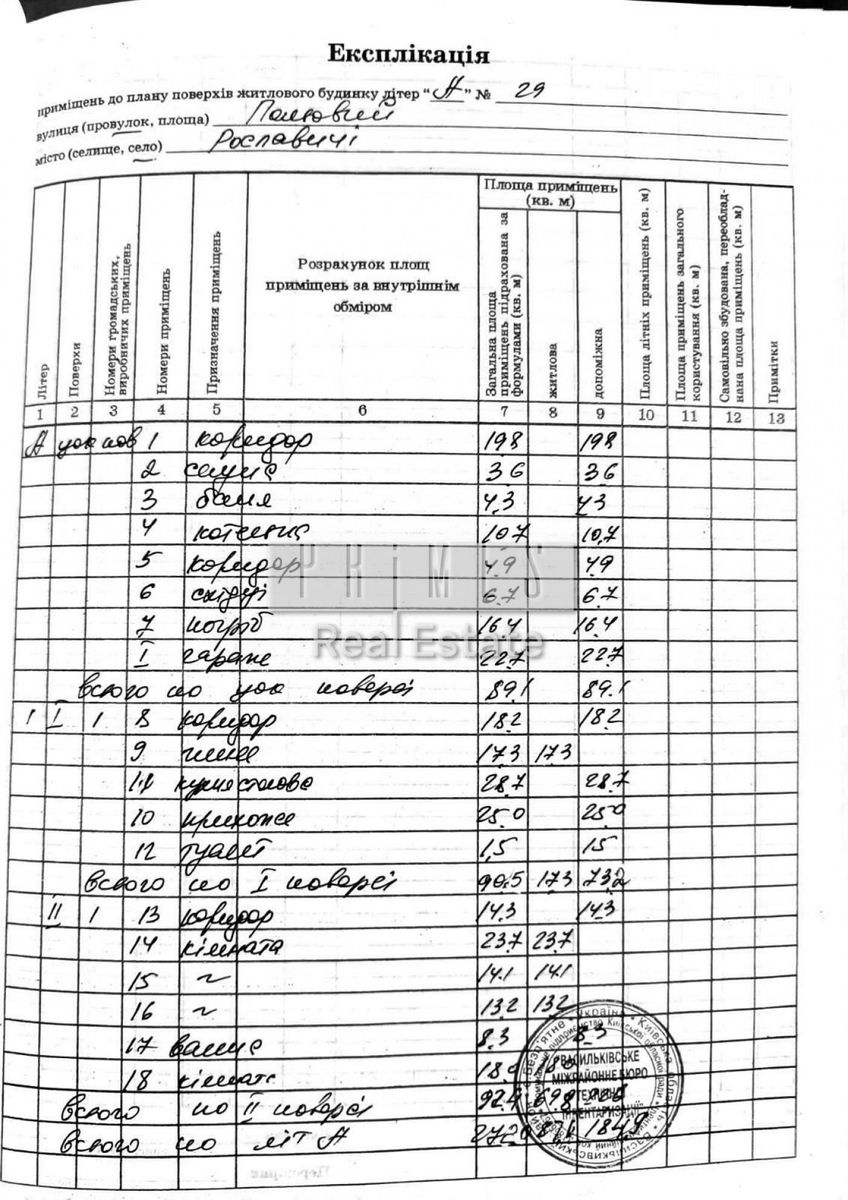 Експлікація
приміщень до плану поверхів житлового будинку літер "А" № 29
вулиця (провулок, площа) Польовий
місто (селище, село) Рославичі
Літер
Поверхи
Номери громадських, виробничих приміщень
Номери приміщень
Призначення приміщень
Розрахунок площ
приміщень за внутрішнім
обміром
Площа приміщень
(кв. м)
Загальна площа приміщень підрахована за формулами (кв. м)
житлова
допоміжна
Площа літніх приміщень (кв. м)
Площа приміщень загального користування (кв. м)
Самовільно збудована, переобладнана площа приміщень (кв. м)
Примітки
1 2 3 4 5 6 7 8 9 10 11 12 13
А цок пов 1 коридор 19.8 19.8
2 сауна 3.6 3.6
3 баня 4.3 4.3
4 котельна 10.7 10.7
5 коридор 4.9 4.9
6 сходи 6.7 6.7
7 погріб 16.4 16.4
I гараж 22.7 22.7
всього по цок поверсі 89.1 89.1
I 1 8 коридор 18.2 18.2
9 17.3 17.3
11 кухня столова 28.7 28.7
10 прихожа 25.0 25.0
12 туалет 1.5 1.5
всього по I поверсі 90.5 17.3 73.2
II 1 13 коридор 14.3 14.3
14 кімната 23.7 23.7
15 ~ 14.1 14.1
16 ~ 13.2 13.2
17 ванна 8.3 8.3
18 кімната
всього по II поверсі 92.4 69.8
всього по літ А
PRIMES
Real Estate
ВАСИЛЬКІВСЬКЕ
МІЖРАЙОННЕ БЮРО
ТЕХНІЧНОЇ
ІНВЕНТАРИЗАЦІЇ